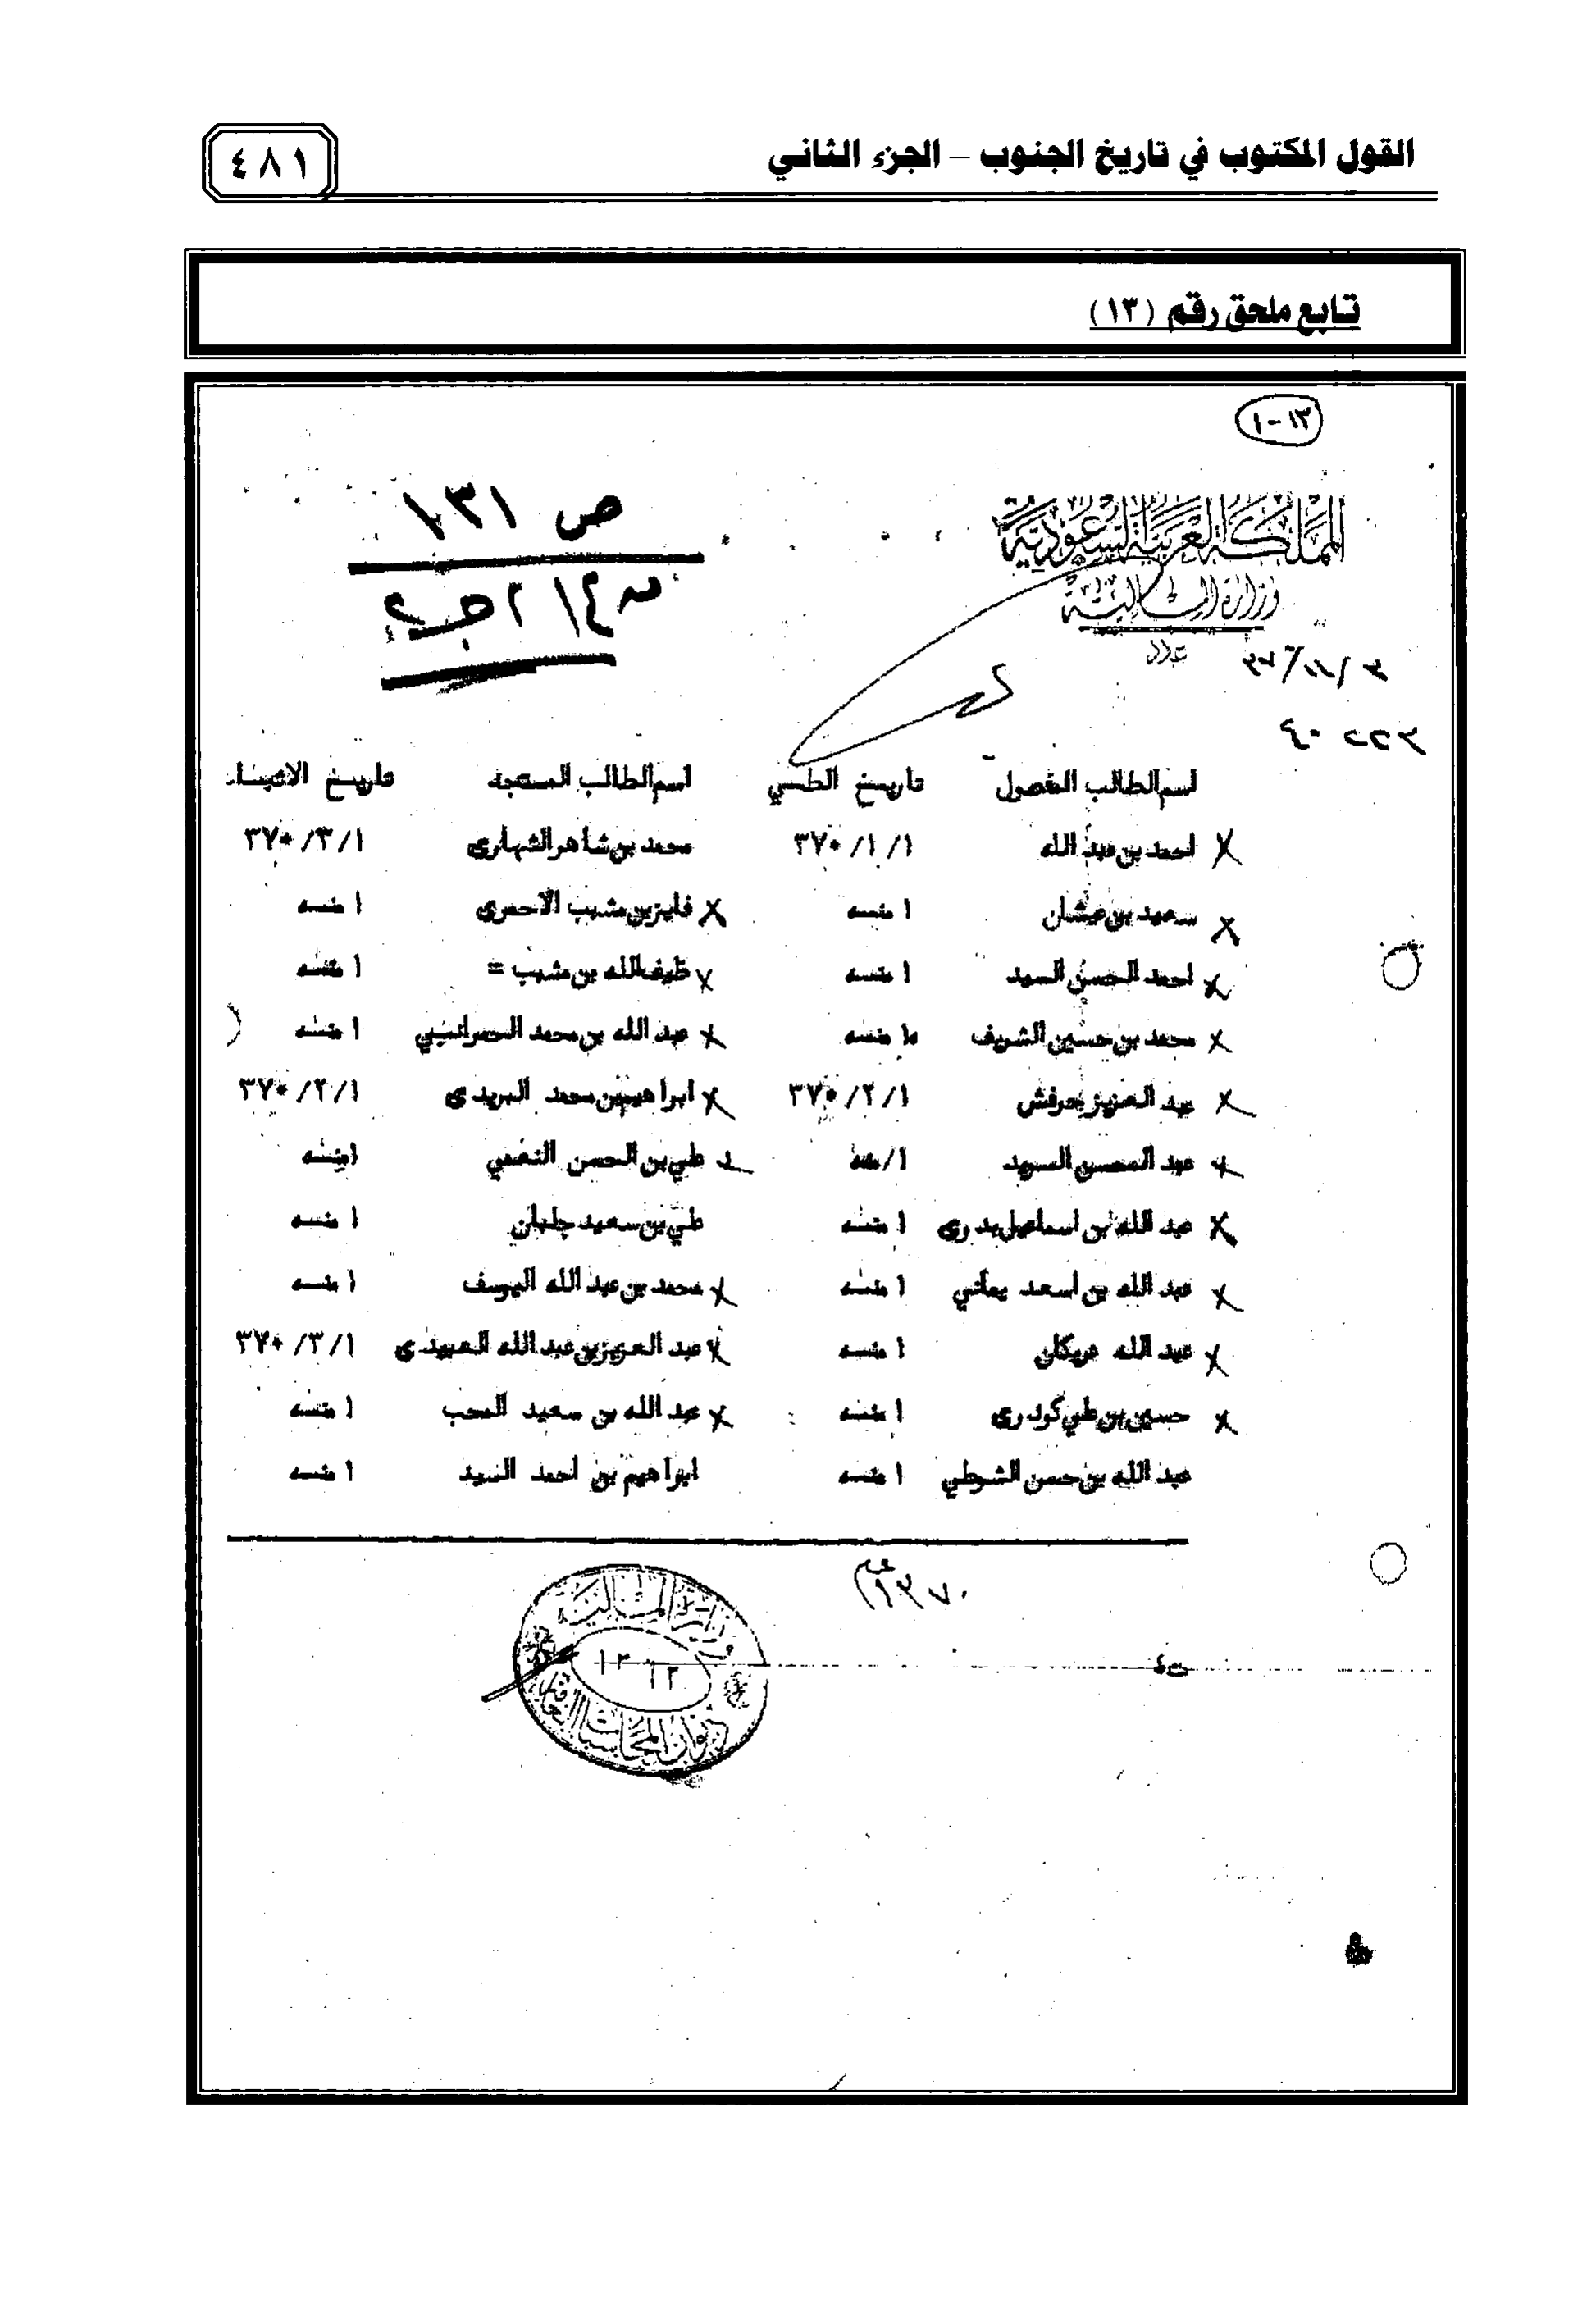 القول المكتوب في تاريخ الجنوب – الجزء الثاني
٤٨١
تابع ملحق رقم (١٣)
١٣-١
المملكة العربية السعودية
وزارة المالية
عدد
ص ١٣١
اسم الطالب المفصول تاريخ الطي اسم الطالب المستجد تاريخ
احمد بن عبد الله ١/١/٣٧٠ محمد بن شاهر الشهارى ١/٣/٣٧٠
سعيد بن عيشان ١ منسه فايز بن مشبب الاحمرى ١ منسه
احمد الحسن السيد ١ منسه ظيف الله بن مشبب = ١ منسه
محمد بن حسين الشريف منسه عبد الله بن محمد ١ منسه
عبد العزيز بحرقش ١/٢/٣٧٠ ابراهيم بن محمد البريدى ١/٢/٣٧٠
عبد المحسن السيد علي بن الحسن النعمي ١ منسه
عبد الله بن اسماعيل بدرى ١ منسه علي بن سعيد جلبان ١ منسه
عبد الله بن اسعد يماني ١ منسه محمد بن عبد الله اليوسف ١ منسه
عبد الله ١ منسه عبد العزيز بن عبد الله العبيدى ١/٣/٣٧٠
حسين بن علي كودرى ١ منسه عبد الله بن سعيد المحب ١ منسه
عبد الله بن حسن الشرطي ١ منسه ابراهيم بن احمد السيد ١ منسه
١٣٧٠
وزارة المالية